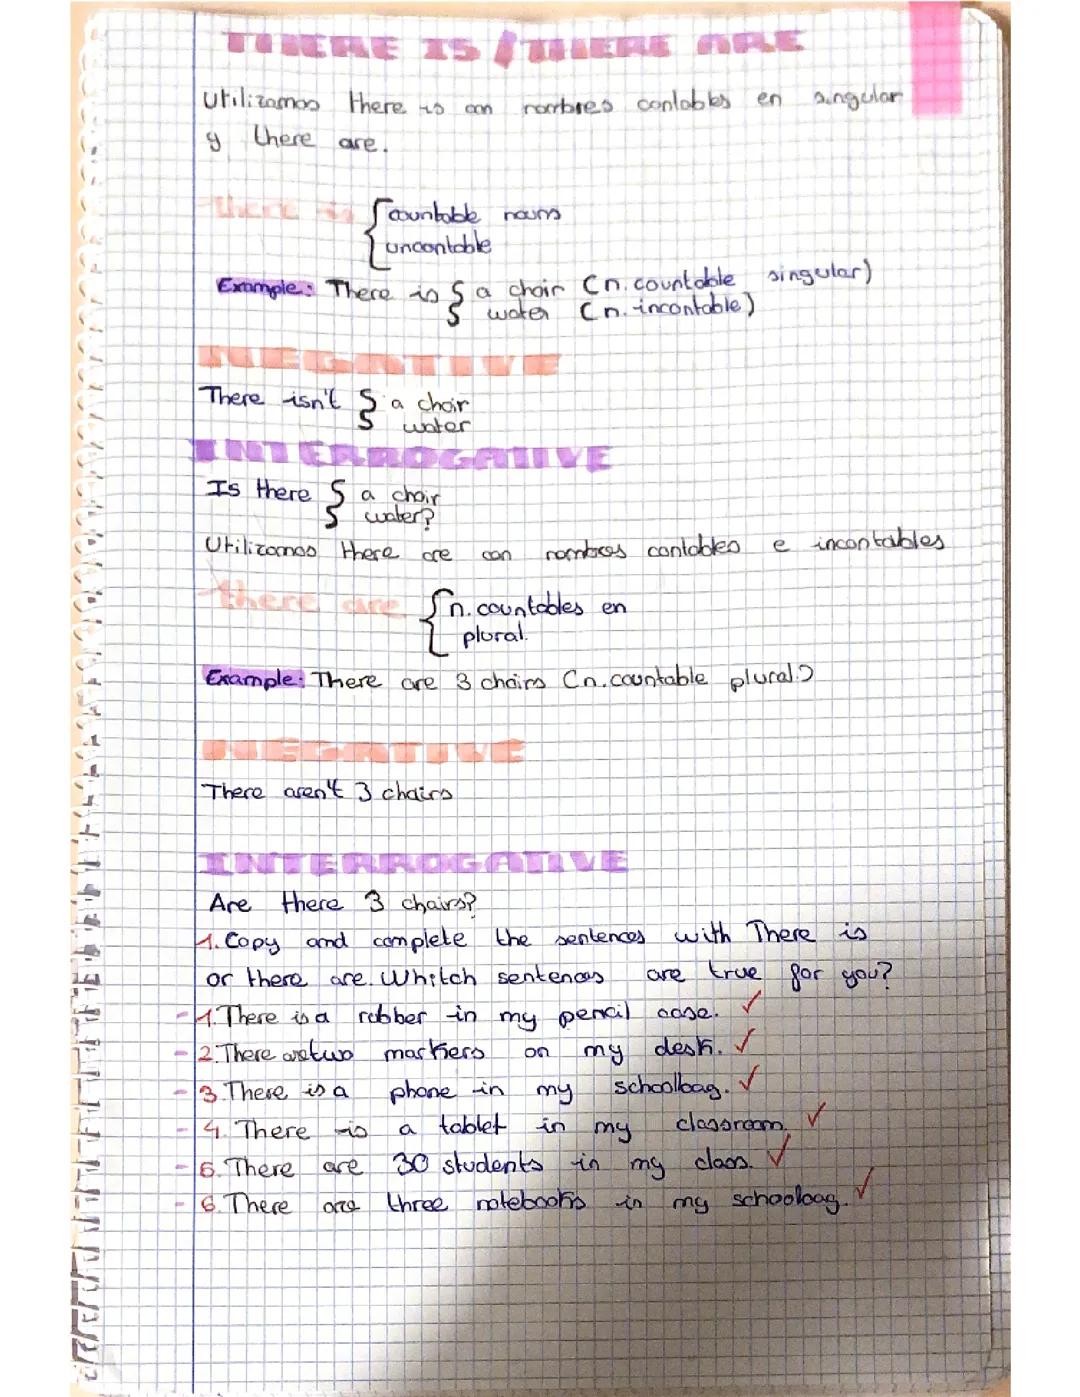 THERE IS / THERE ARE
Utilizamos there is con nombres contables en singular
y there are.
there is { countable nouns
uncontable
Example: There is { a chair (n. countable singular)
water (n. incontable)
NEGATIVE
There isn't { a chair
water
INTERROGATIVE
Is there { a chair
water?
Utilizamos there are con nombres contables e incontables
there are { n. countables en
plural.
Example: There are 3 chairs (n. countable plural)
NEGATIVE
There aren't 3 chairs
INTERROGATIVE
Are there 3 chairs?
1. Copy and complete the sentences with There is
or there are. Whitch sentences are true for you?
- 1. There is a rubber in my pencil case. ✓
- 2. There are two markers on my desk. ✓
- 3. There is a phone in my schoolbag. ✓
- 4. There is a tablet in my classroom. ✓
- 5. There are 30 students in my class. ✓
- 6. There are three notebooks in my schoolbag. ✓